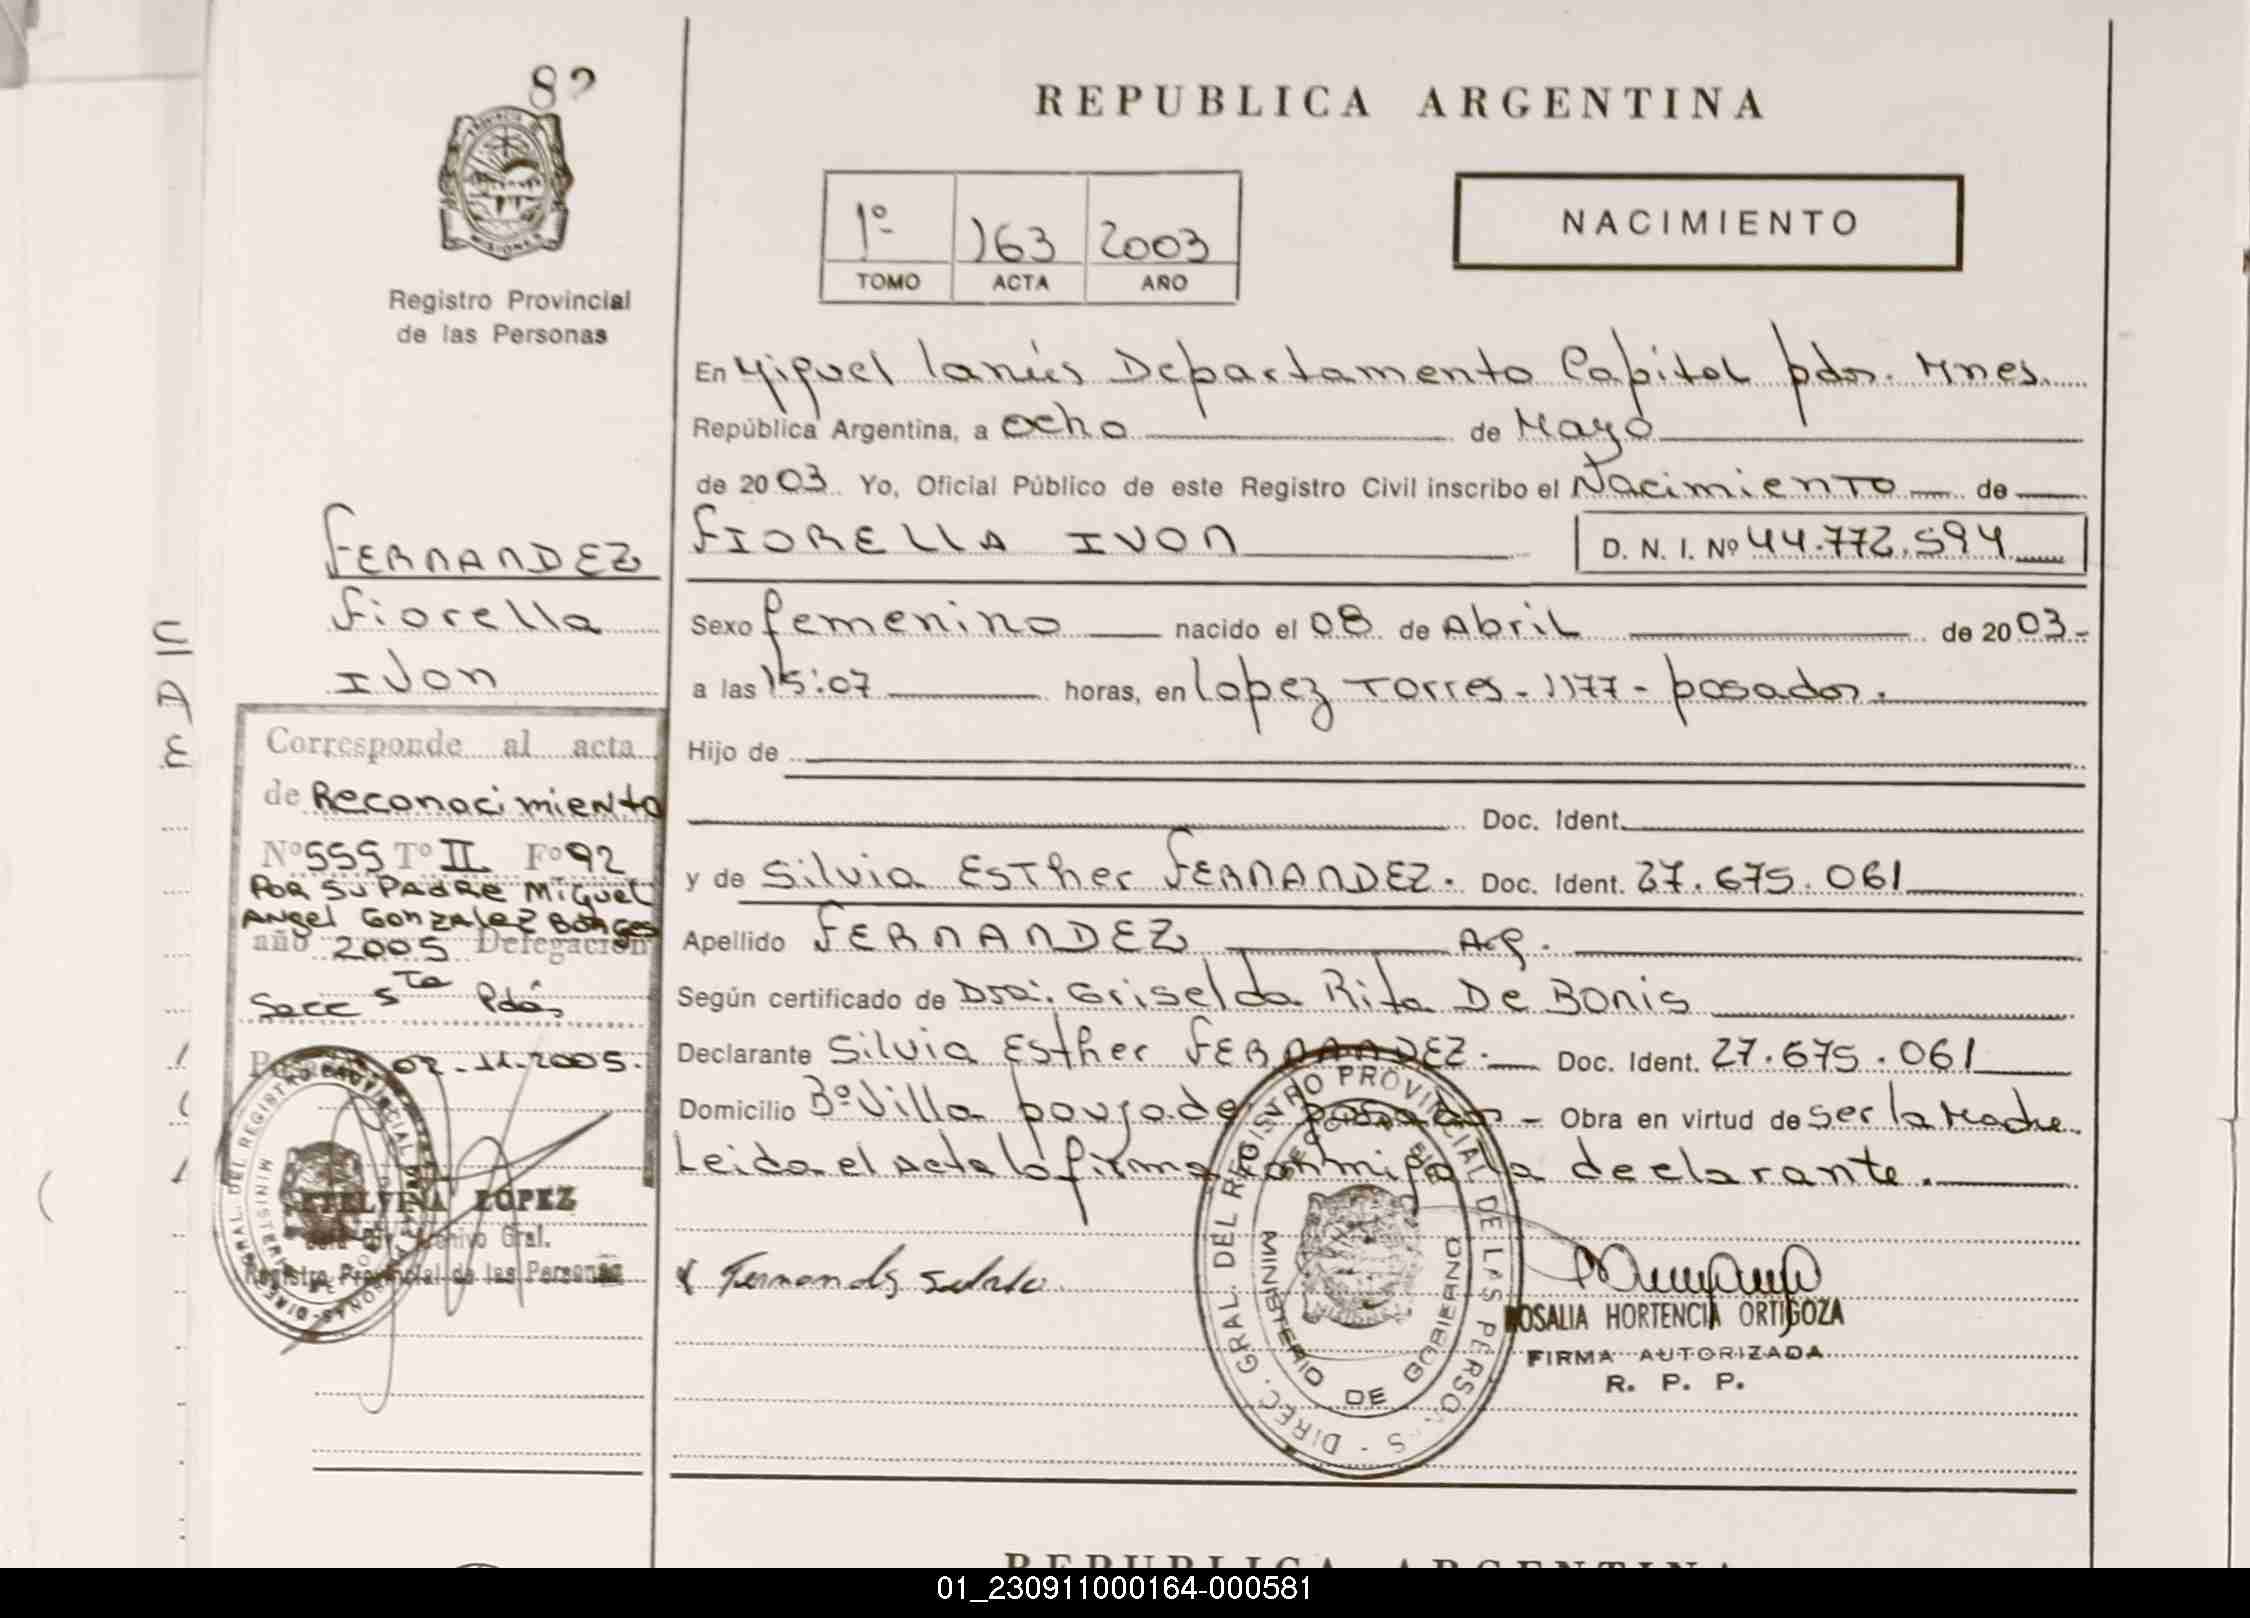 82
PROVINCIA DE
MISIONES
Registro Provincial
de las Personas
FERNANDEZ
Fiorella
Ivon
Corresponde al acta
de Reconocimiento
Nº 555 Tº II Fº 92
POR SU PADRE MIGUEL
ANgel GONZALEZ BORGES
año 2005 Delegación
Secc 5ta Pdás
02-11-2005.
ETELVINA LOPEZ
Archivo Gral.
Registro Provincial de las Personas
REPUBLICA ARGENTINA
1º 163 2003
TOMO ACTA AÑO
NACIMIENTO
En Miguel Lanús Departamento Capital pdas. Mnes.
República Argentina, a ocho de Mayo
de 2003. Yo, Oficial Público de este Registro Civil inscribo el Nacimiento de
FIORELLA IVON D. N. I. Nº 44.772.594
Sexo femenino nacido el 08 de Abril de 2003-
a las 15:07 horas, en Lopez Torres - 1177 - posadas.
Hijo de
Doc. Ident.
y de Silvia Esther FERNANDEZ. Doc. Ident. 27.675.061
Apellido FERNANDEZ Arg.
Según certificado de Dra. Griselda Rita De Bonis
Declarante Silvia Esther FERNANDEZ. Doc. Ident. 27.675.061
Domicilio Bº Villa poujade, posadas - Obra en virtud de ser la Madre
Leida el Acta lo firma conmigo la declarante.
Fernandez
DIREC. GRAL. DEL REGISTRO PROVINCIAL DE LAS PERSONAS
MINISTERIO DE GOBIERNO
ROSALIA HORTENCIA ORTIGOZA
FIRMA AUTORIZADA
R. P. P.
REPUBLICA ARGENTINA
01_230911000164-000581